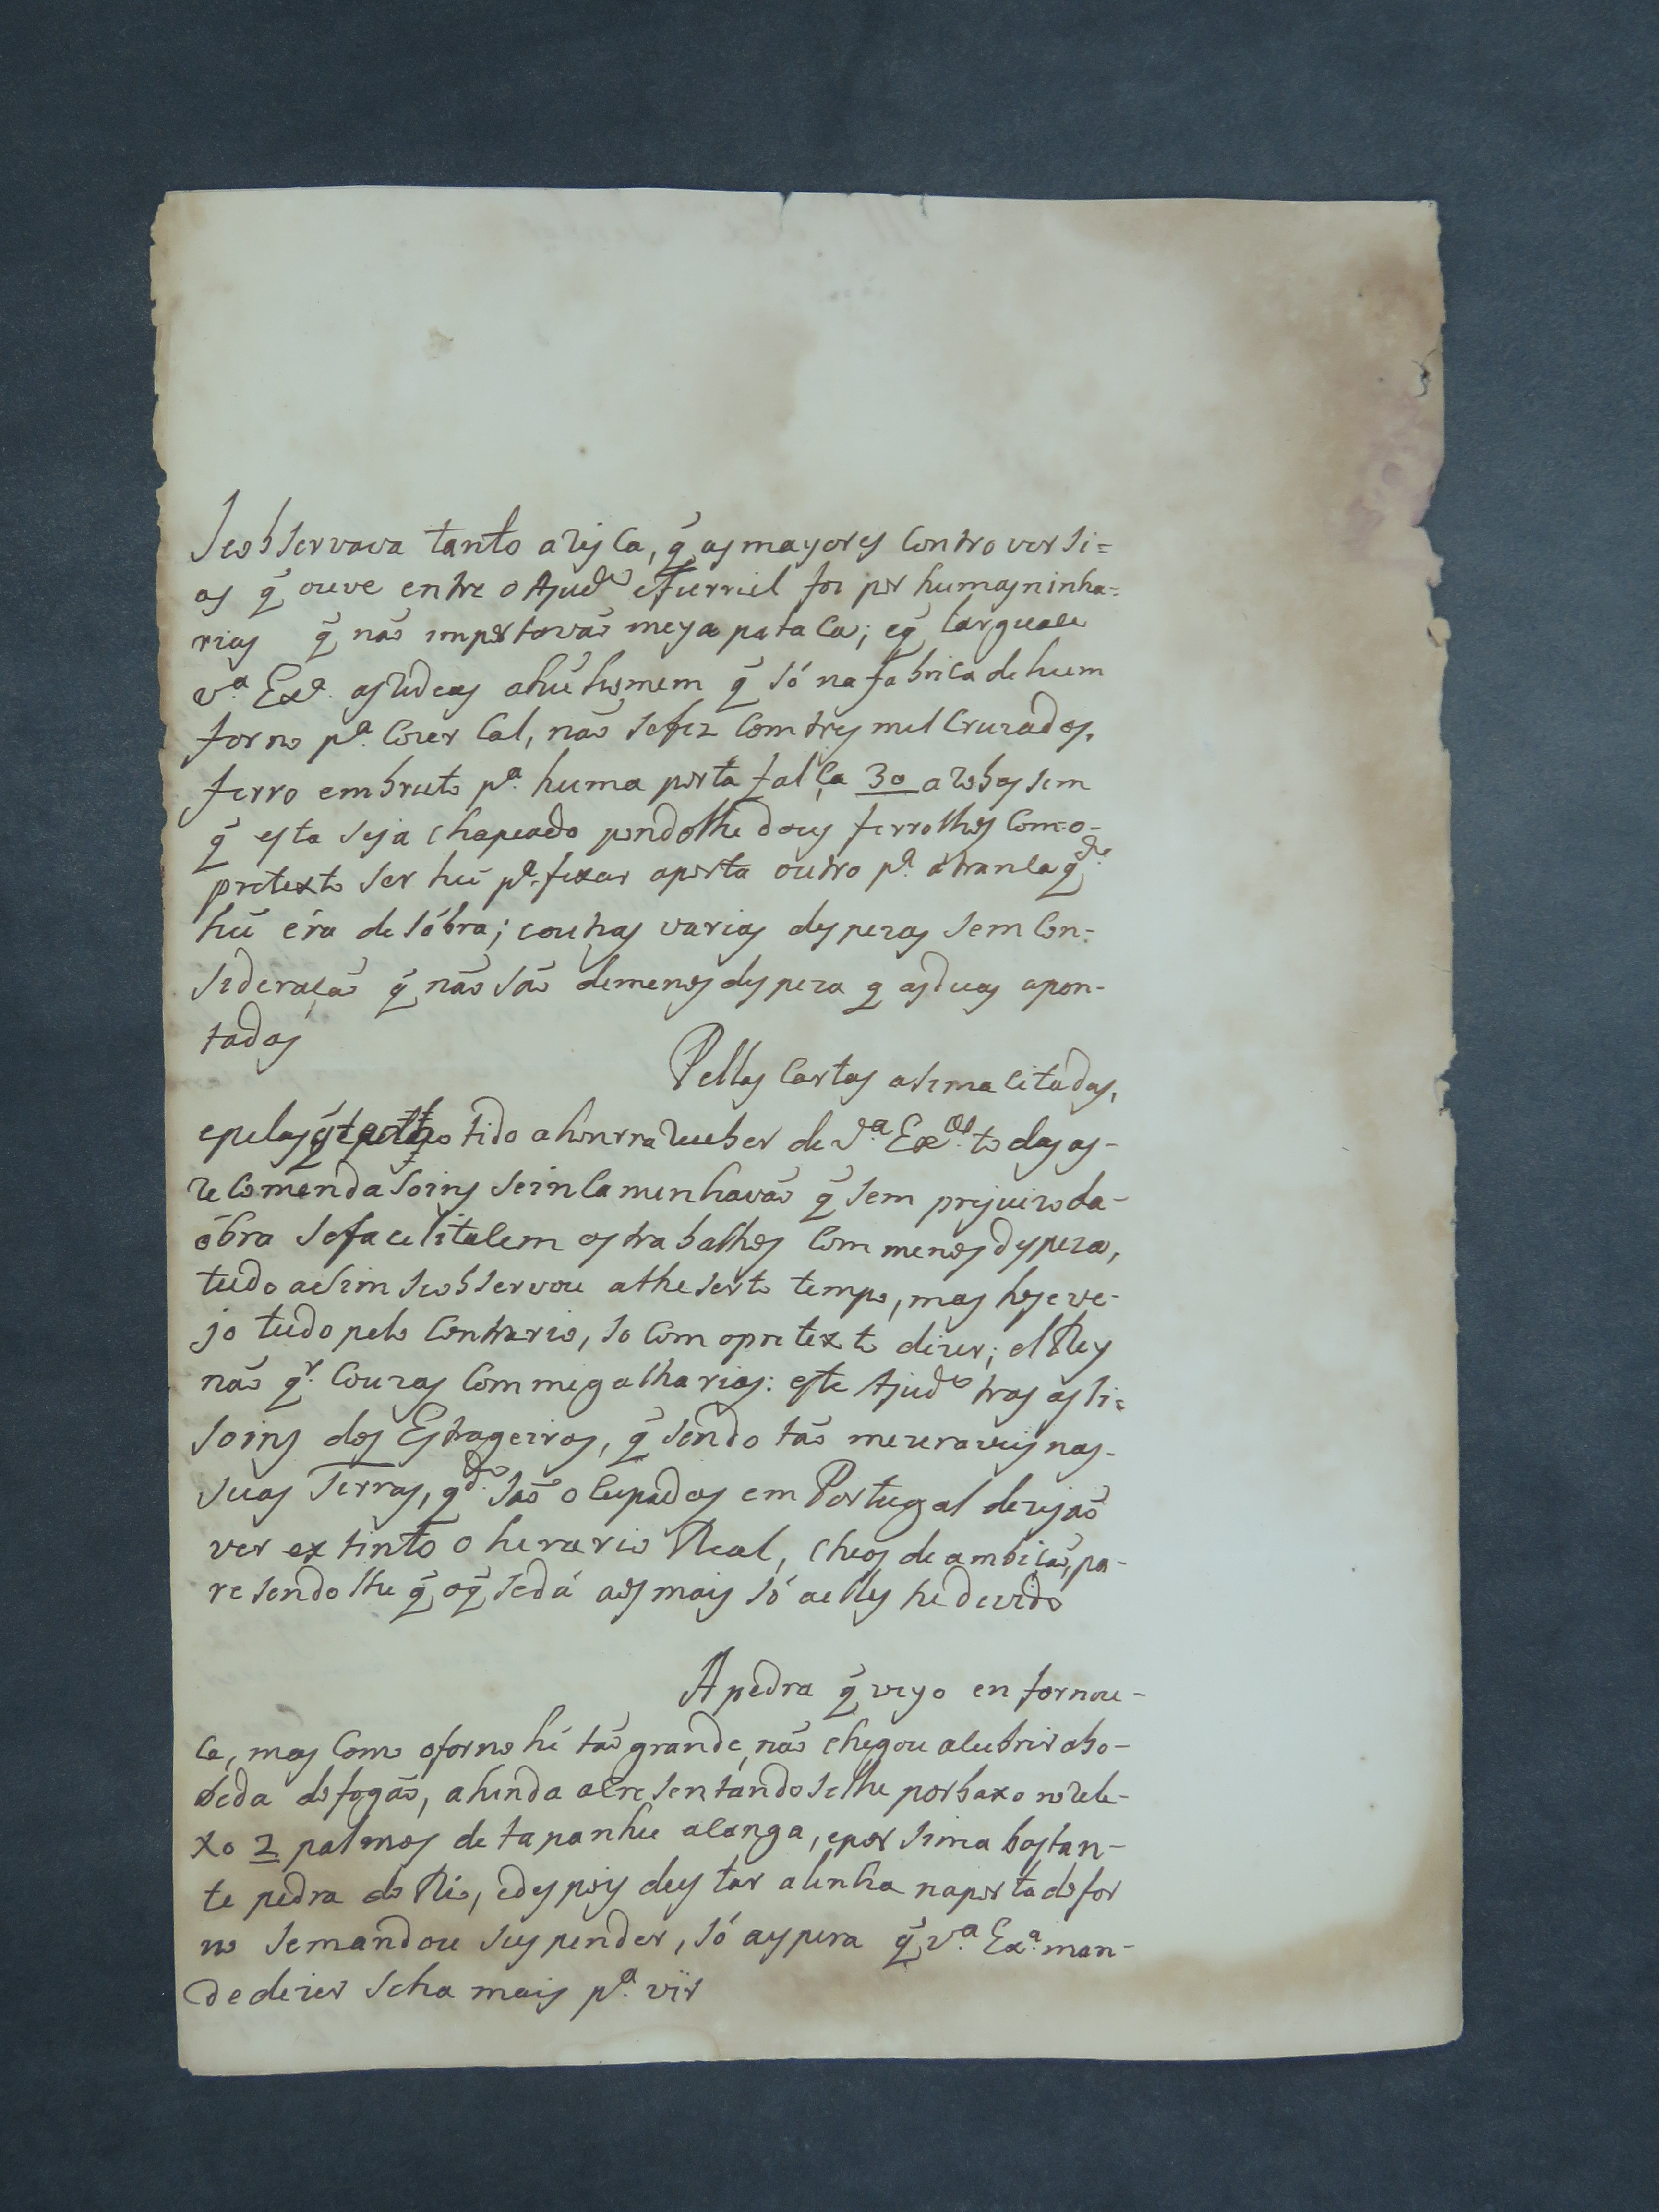 Seobservava tanto arisca, q̃ as mayores Controversi=
as q̃ ouve entre o Ajud.e eFurriel foi por humas ninha=
rias q̃ naõ importavaõ meya pataca; eq̃ largue
v.a Ex.a as redeas ahũ homem q̃ só na fabrica de hum
forno p.a Cozer Cal, naõ sefez Com tres mil Cruzados,
ferro embruto p.a huma porta falça 30 arobas sem
q̃ esta seja chapeado pondolhe dous ferrolhos Com o-
pretexto ser hũ p.a fexar aporta outro p.a atranca q.do
hũ éra de sóbra; eoutras varias despezas sem Con-
sideraçaõ q̃ naõ saõ demenos despeza q as duas apon-
tadas
Pellas Cartas asima Citadas,
epelas q̃ tenho tido ahonrra receber de V.a Ex.a todas as-
recomendasoins seincaminhavaõ q̃ sem prejuizo da-
óbra sefacelitasem os trabalhos Com menos despeza,
tudo asim seobservou athe serto tempo, mas hoje ve-
jo tudo pelo Contrario, so Com opretexto dizer; elRey
naõ q.r Couzas Com migalharias: este Ajud.e tras as li=
soins dos Estrageiros, q̃ sendo taõ mizeraveis nas-
suas Terras, q.do saõ ocupados em Portugal dezejaõ
ver extinto o herario Real, cheos de ambiçaõ, pa-
resendolhe q̃ oq̃ sedá aos mais só aelles he devido
A pedra q̃ veyo en fornou-
ce, mas Como oforno hé taõ grande, naõ chegou acubrir abo-
beda do fogaõ, ahinda acresentandoselhe porbaxo no rele-
xo 2 palmos de tapanhu acanga, epor sima bastan-
te pedra do Rio, edespois destar alenha naporta do for
no semandou suspender, só aspera q̃ v.a Ex.a man-
de dizer seha mais p.a vir